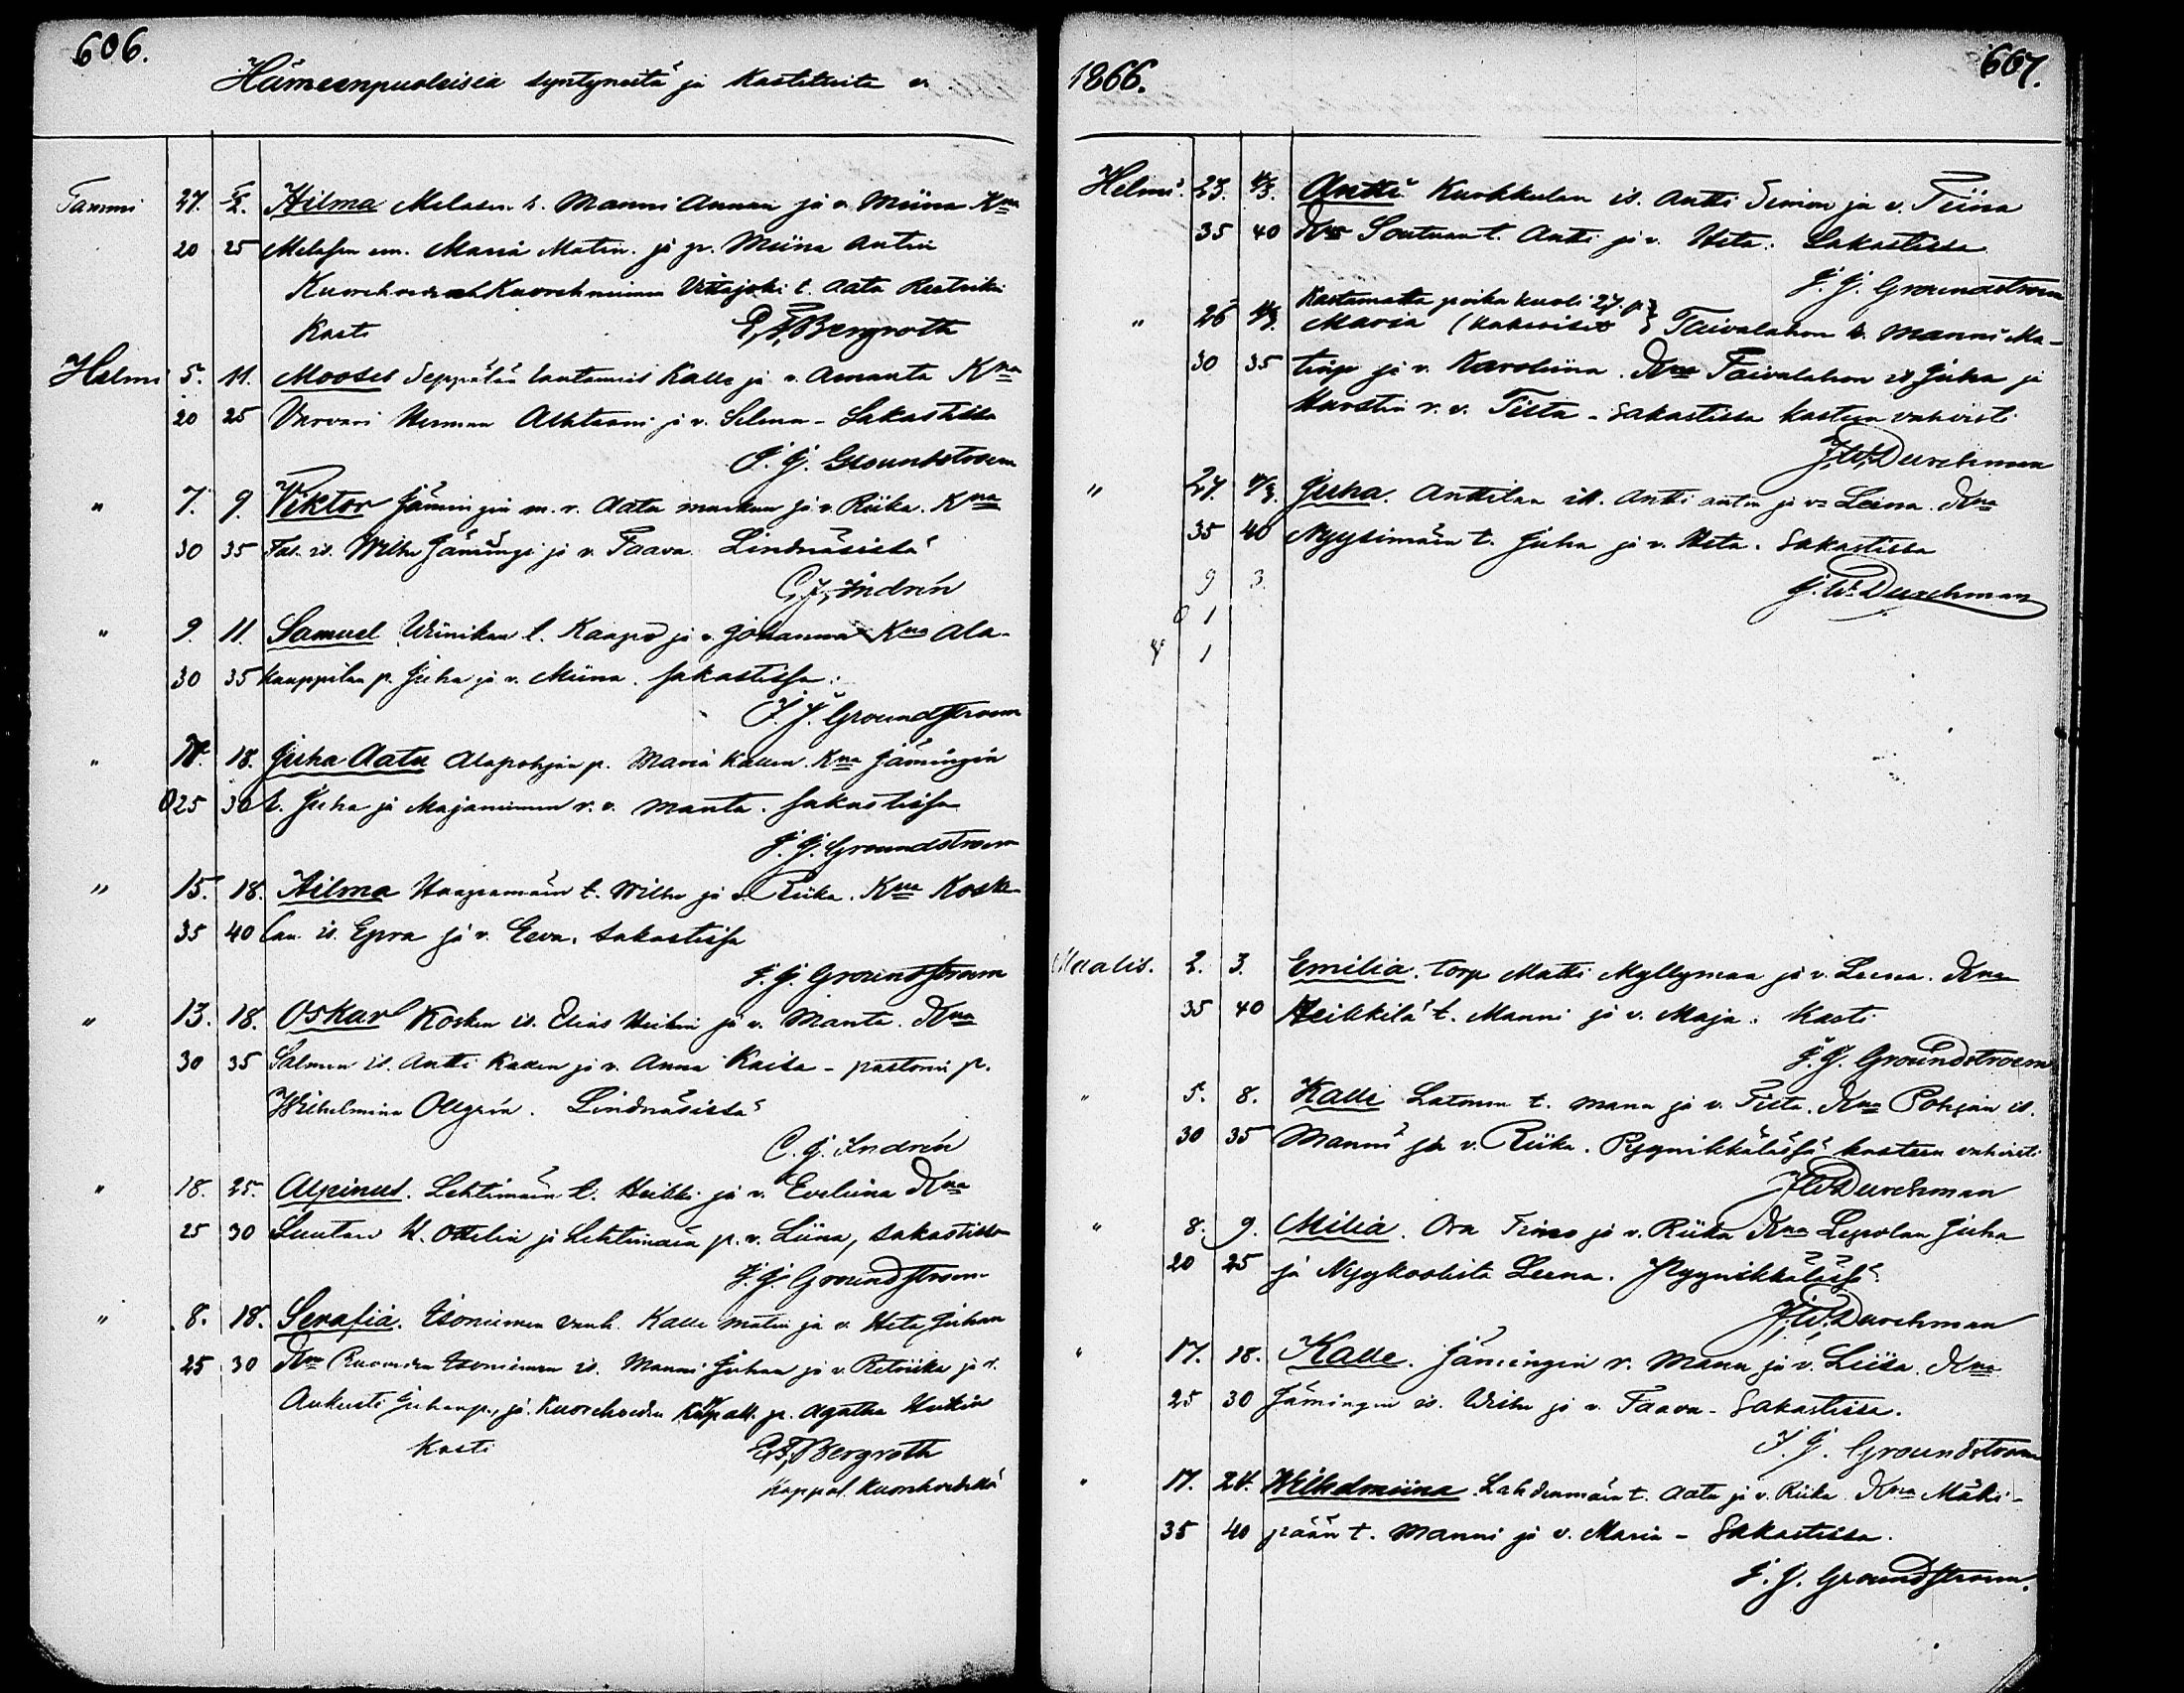 606.
Hämeenpuoleisia syntyneitä ja Kastetuita v.
Tammi 27. 2. Hilma Melasen t. Manni Annan ja v. Miina Kna
20 25 Melasen em. Maria Matin. ja pr. Miina Antin
Kuorehveden Kuorehniemen t. Aata
Kasti E, F, Bergroth
Helmi 5. 11. Mooses Seppälän lautamies Kalle ja v. Amanta Kna
20 25 Varvari Herman Ahltrami ja v. Selma - Sakastissa
J. G. Groundstroem
" 7. 9. Viktor Jämingin m. v. Aatu ja v. Riika. Kna
30 35 Tal. is. Wilhu Jämingi ja v. Taava Lindnäsissä
C, J, Indrén
" 9. 11. Samuel Wiinikan l. Kaapo ja v. Johanna Kna Ala-
30 35 kauppilan p. Juha ja v. Miina. sakastissa.
J. J. Groundstroem
" 18. Juha Aatu Alapohjan p. Maria Kallen. Kna Jämingin
25 30 t. Juha ja Majaniemen r. v. Manta. sakastissa
J. G. Groundstroem
" 15. 18. Hilma Haapamäen t. Wilhu ja v. Riika. Kna Koske-
35 40 lan is. Epra ja v. Eeva. sakastissa
J. G. Groundstroem
" 13. 18. Oskar Kosken is. Elias Heikin ja v. Manta. Kna
30 35 Salmen is. Antti Kallen ja v. Anna Kaisa - pastorin p.
Wilhelmina Ollgrén. Lindnäsissä
C. J. Indrén
" 18. 25. Alpinus. Lehtimäen t. Heikki ja v. Eveliina Kna
25 30 Suutari K. Ottelin ja Lehtimäen p. v. Liina, sakastissa
J. G. Groundstroem
" 8. 18. Serafia. Isoniemen vanh. Kalle Matin ja v. Heta Juhan
25 30 Kna Ruoveden Isoniemen is. Manni Juhan ja v. Retriika ja r.
Aukusti Juhanp., ja Kuorehveden pr. Agatha Heikin
Kasti E, F, Bergroth
Kappal. Kuorehvedellä
1866. 607.
Helmi. 23. 4/3. Antti Kurkkulan is. Antti Simon ja v. Tiina
35 40 Kna Soutuan t. Antti ja v. Heta. Sakastissa
J. G. Groundstroem
Kastamatta poika kuoli 27. p.
" 26 4/3. Maria (kaksoiset) Taivalahon t. Manni Ma-
30 35 tinp ja v. Karoliina. Kna Taivalahon is. Juha ja
Harstin r. v. Tiita - sakastissa kasteen vahvisti
J, W, Durchman
" 27. 4/3. Juha. Anttilan is. Antti Antin ja v. Leena. Kna
35 40 Nyysimäen t. Juha ja v. Heta. sakastissa
J. W. Durchman
9 3.
0 1
1
Maalis. 2. 3. Emilia. torp Matti Myllymaa ja v. Leena. Kna
35 40 Heikkilä t. Manni ja v. Maja. Kasti
J. G. Groundstroem
" 5. 8. Kalle Latomen t. Manu ja v. Tiita. Kna Pohjan is.
30 35 Manni ja v. Riika. Pyynikkälässä kasteen vahvisti
J W Durchman
" 8. 9. Milia. Ora ja v. Riika Kna Lepolan Juha
20 25 ja Nyykoolista Leena. Pyynikkälässä
J, W, Durchman
" 17. 18. Kalle. Jämingin r. Manu ja v. Liisa. Kna
25 30 Jämingin is. Wilhu ja v. Taava - Sakastissa.
J. G. Groundstroem
" 17. 24. Wilhelmiina. Lahdenmäen t. Aatu ja v. Riika. Kna Mäki-
35 40 pään t. Manni ja v. Maria - Sakastissa.
J. G. Groundstroem.